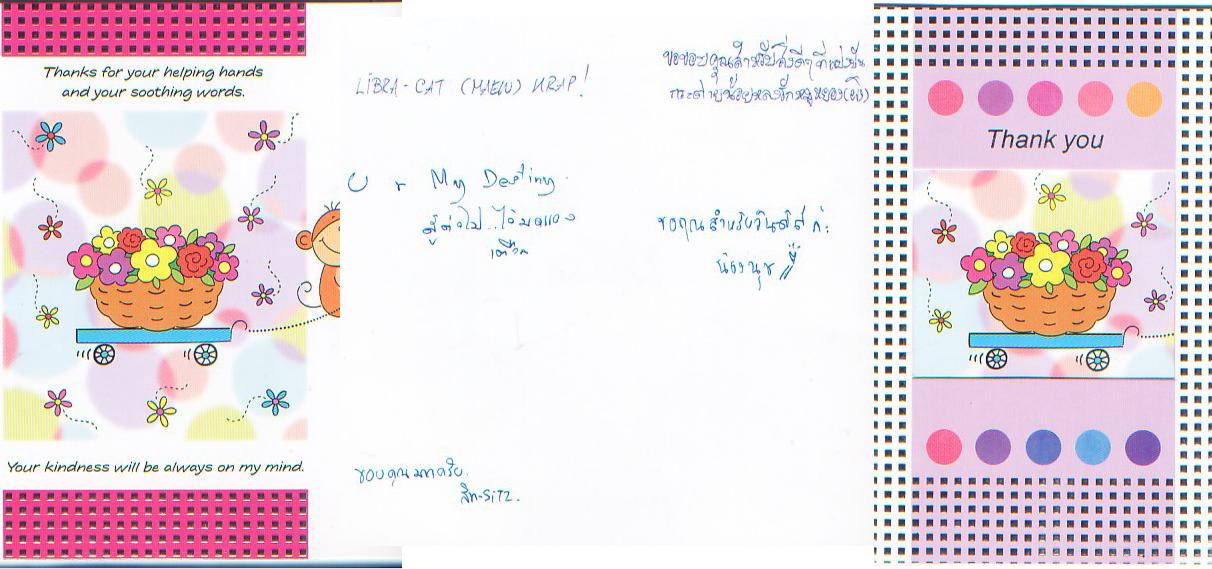 Thanks for your helping hands
and your soothing words.
Your kindness will be always on my mind.
LIBRA-CAT (MAEW) KRAP!
U r My Destiny.
ขอบคุณมากครับ.
สิท-SiTZ.
ขอขอบคุณสำหรับสิ่งดีๆที่แบ่งปัน
กระต่ายน้อยหลงรัก
ขอคุณสำหรับวันดีดี ค่ะ
น้องนุช
Thank you